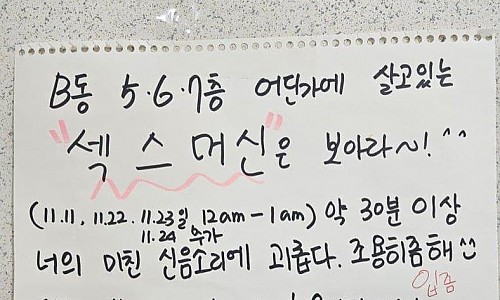 B동 5·6·7층 어딘가에 살고있는
"섹스머신"은 보아라~! ^^
(11.11, 11.22. 11.23일 12am-1am) 약 30분 이상
11.24 추가
너의 미친 신음소리에 괴롭다. 조용히좀해^^
입좀